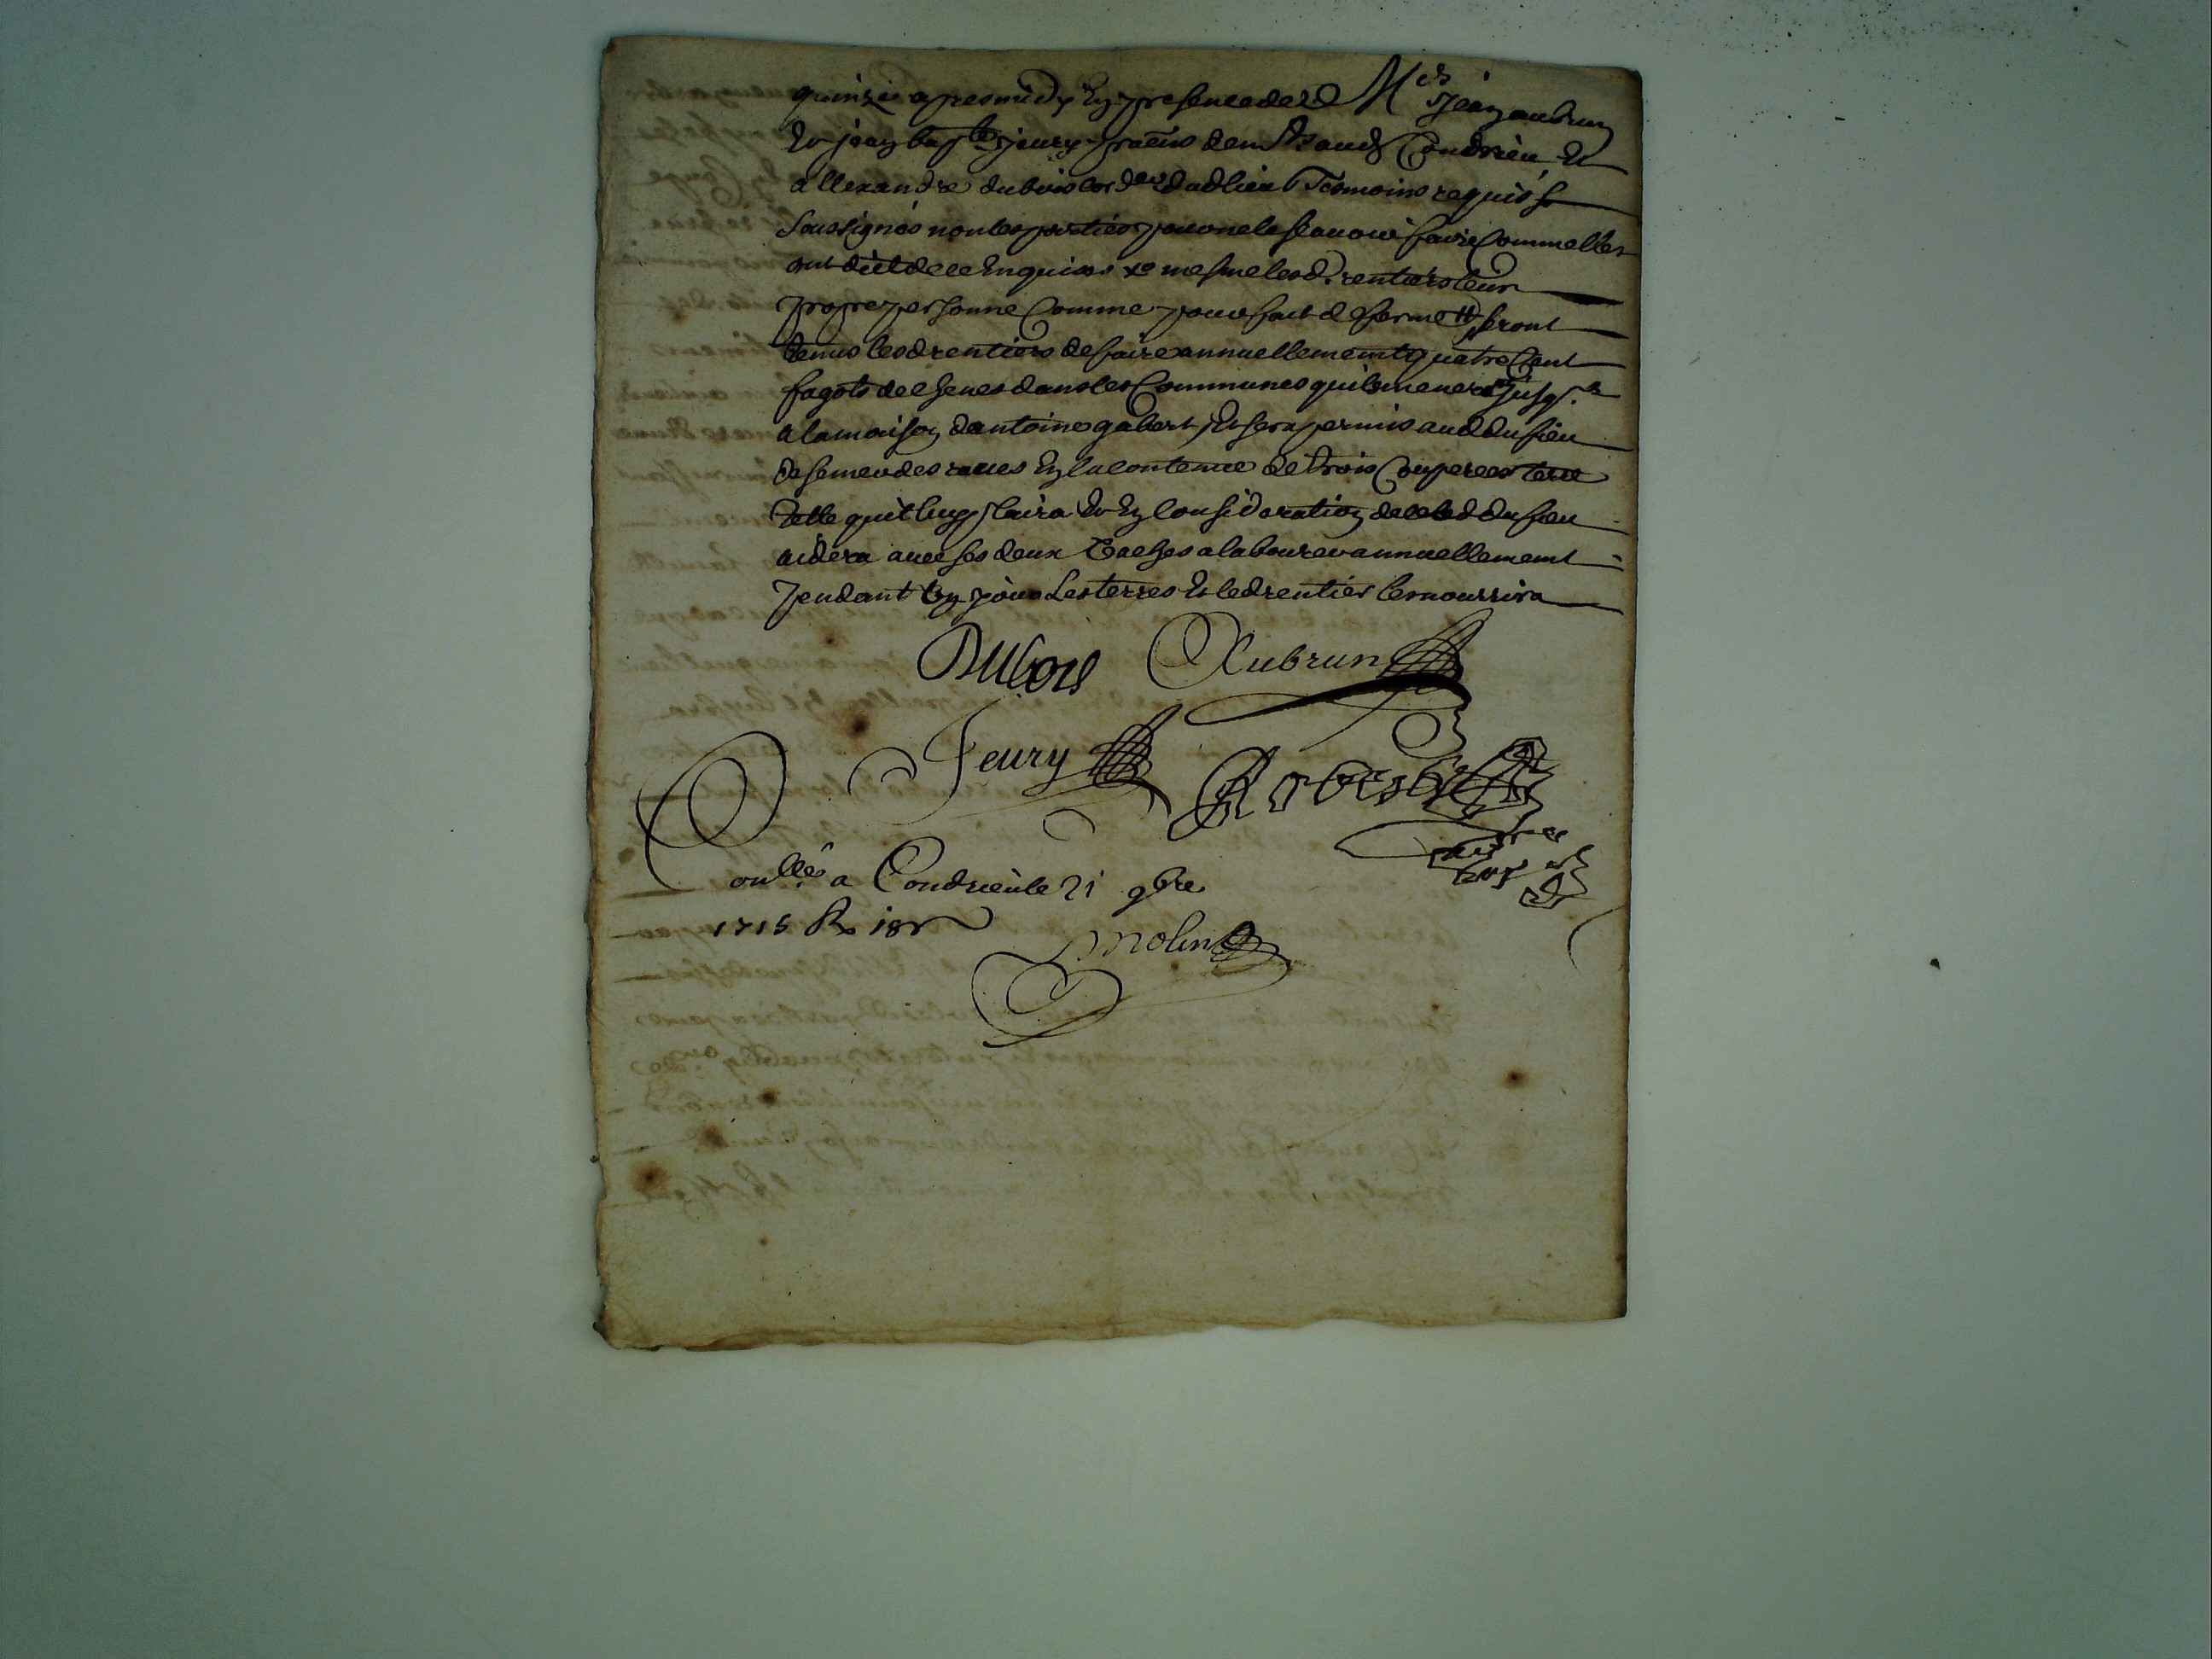 quinze apres midy En presence de Mes Jean aubrun
Et jean bapte jeury praticiens dem.t aud Condrieu Et
allexandre dubois cor.der dud lieu Tesmoins requis &
soussignés non les parties pour ne le scauoir faire Comme elles
ont dict de ce Enquises & mesme lesd. rentiers leur
propre personne Comme pour fait de ferme seront
tenus lesd rentiers de faire annuellement quatre Cent
fagots de chenes dans les Communes quils meneront jusq.s
a la maison dantoine gabert, Et sera permis aud dufieu
de semer des raues En la contenue de trois Couperees terre
telle quil luy plaira Et En Consideration de ce led dufieu
aidera auec ses deux Vaches a labourer annuellement
pendant Un jour Les terres Et led rentier les nourrira
Dubois Aubrun
Jeury Robert
Conllé a Condrieu le 21 9bre
1715 R 18s
Molin